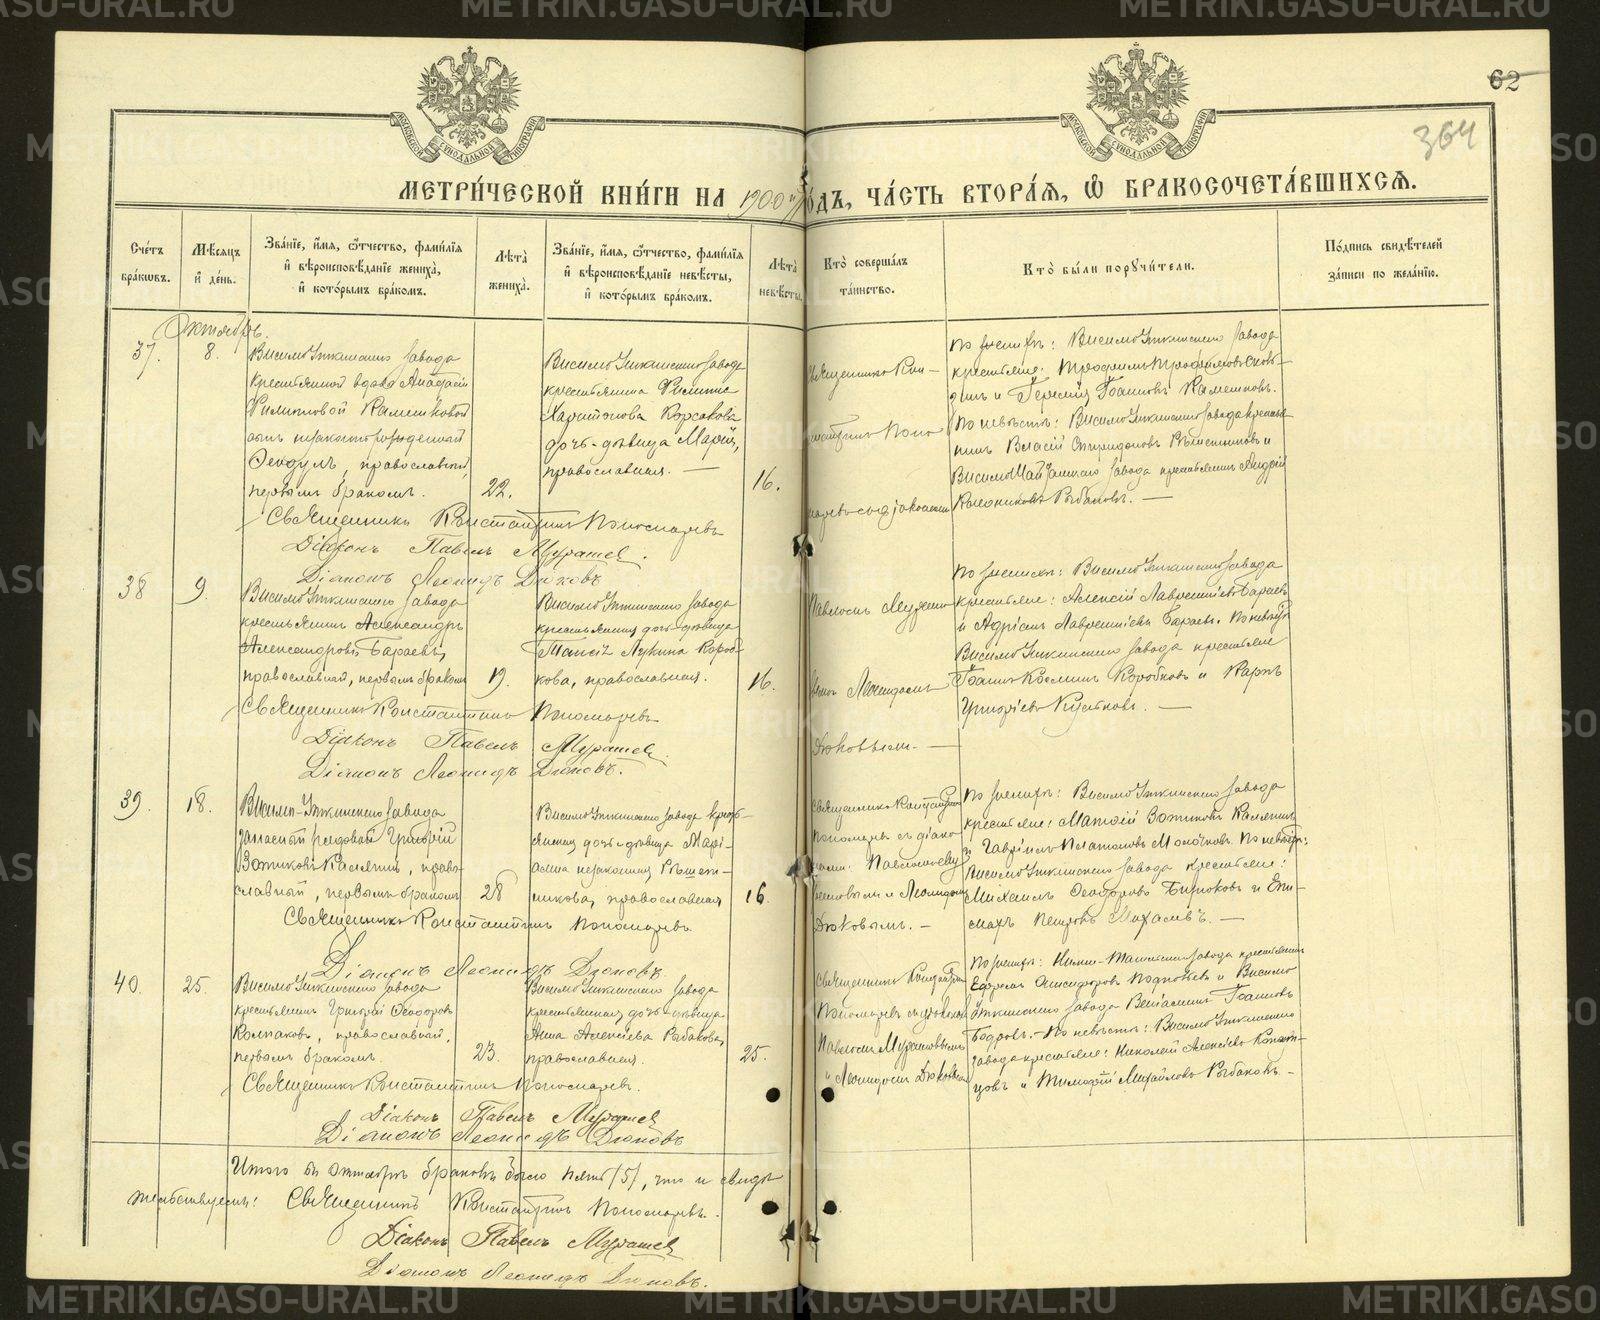 62
364
МОСКОВСКОЙ СУНОДАЛЬНОЙ ТИПОГРАФІИ
МОСКОВСКОЙ СУНОДАЛЬНОЙ ТИПОГРАФІИ
МЕТРИ́ЧЕСКОЙ КНИ́ГИ НА 1900й ГО́ДЪ, ЧА́СТЬ ВТОРА́Я, Ѿ БРАКОСОЧЕТА́ВШИХСЯ.
Сче́тъ бра́кѡвъ.
Мѣ́сяцъ и҆ де́нь.
Зва́нїе, и҆́мя, ѻ҆́тчество, фами́лїя
и҆ вѣроисповѣ́данїе жениха̀,
и҆ кото́рымъ бра́комъ.
Лѣ́та̀ жениха̀.
Зва́нїе, и҆́мя, ѻ҆́тчество, фами́лїя
и҆ вѣроисповѣ́данїе невѣ́сты,
и҆ кото́рымъ бра́комъ.
Лѣ́та̀ невѣ́сты.
Кто̀ соверша́лъ та́инство.
Кто̀ бы́ли порꙋчи́тели.
По́дпись свидѣ́телей за́писи по жела́нїю.
Октябрь.
37.
8.
Висимо Уткинскаго завода
крестьянской вдовы
Филипповой Камешковой
сынъ незаконнорожденный
Ѳеодулъ, православный,
первымъ бракомъ.
22.
Висимо Уткинскаго завода
крестьянина Филиппа
Харитонова Корсакова
дочь-дѣвица Марія,
православная. —
16.
Священникъ Кон-
стантинъ Поно-
маревъ съ діаконами
По женихѣ: Висимо Уткинскаго завода
крестьяне: Трофимъ Трофимовъ
и Іоанновъ Камешковъ.
По невѣстѣ: Висимо Уткинскаго завода крестья-
нинъ Власій Спиридоновъ Рѣшетниковъ и
Висимо Шайтанскаго завода крестьянинъ Андрей
Рыбаковъ. —
Священникъ Константинъ Пономаревъ
Діаконъ Павелъ Мурашев.
Діаконъ Леонидъ Дюковъ
38
9.
Висимо Уткинскаго завода
крестьянинъ Александръ
Александровъ Бараевъ,
православный, первымъ бракомъ
19.
Висимо Уткинскаго завода
крестьянина дочь-дѣвица
Таисія Лукина Короб-
кова, православная.
16.
Павломъ Мураше-
вымъ Леонидомъ
Дюковымъ. —
По женихѣ: Висимо Уткинскаго завода
крестьяне: Алексій Лаврентіевъ Бараевъ
и Адріанъ Лаврентіевъ Бараевъ. По невѣстѣ:
Висимо Уткинскаго завода крестьяне
Іоаннъ Косминъ Коробковъ и Карпъ
Григорьевъ Кустковъ. —
Священникъ Константинъ Пономаревъ
Діаконъ Павелъ Мурашев.
Діаконъ Леонидъ Дюковъ.
39.
18.
Висимо-Уткинскаго завода
запасный рядовой Григорій
Калягинъ, право-
славный, первымъ бракомъ
28
Висимо Уткинскаго завода кресть-
янина дочь-дѣвица Марі-
анна незаконная Рѣшет-
никова, православная
16.
Священникъ Константинъ
Пономаревъ съ діако-
нами: Павломъ Мура-
шовымъ и Леонидомъ
Дюковымъ. —
По женихѣ: Висимо Уткинскаго завода
крестьяне: Матѳій Калягинъ
и Гавріилъ Платоновъ Молочковъ. По невѣстѣ:
Висимо Уткинскаго завода крестьяне:
Михаилъ Ѳеодоровъ Бирюковъ и Епи-
махъ Петровъ Михалевъ. —
Священникъ Константинъ Пономаревъ
Діаконъ Леонидъ Дюковъ
40.
25.
Висимо Уткинскаго завода
крестьянинъ Григорій Ѳеодоровъ
Колпаковъ, православный,
первымъ бракомъ.
23.
Висимо Уткинскаго завода
крестьянина дочь-дѣвица
Анна Алексіева Рыбакова,
православная.
25.
Священникъ Константинъ
Пономаревъ съ діаконами
Павломъ Мурашовымъ
и Леонидомъ Дюковымъ
По женихѣ: Нижне-Тагильскаго завода крестьянинъ
Ефремъ Онисифоровъ и Висимо
Уткинскаго завода Веніаминъ Іоанновъ
Бодровъ. - По невѣстѣ: Висимо Уткинскаго
завода крестьяне: Николай Алексіевъ
и Тимоѳій Михайловъ Рыбаковъ. —
Священникъ Константинъ Пономаревъ.
Діаконъ Павелъ Мурашев
Діаконъ Леонидъ Дюковъ
Итого въ октябрѣ браковъ было пять (5), что и свидѣ-
тельствуемъ: Священникъ Константинъ Пономаревъ.
Діаконъ Павелъ Мурашев
Діаконъ Леонидъ Дюковъ.
METRIKI.GASO-URAL.RU